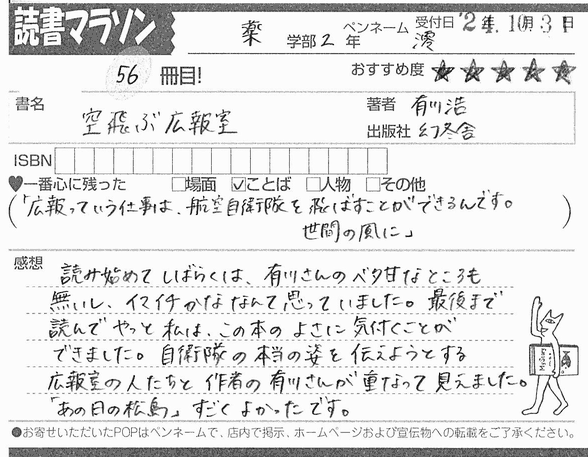 読書マラソン
薬 学部 2 年 ペンネーム 澪 受付日 '24年 10月 3日
56 冊目! おすすめ度 ★★★★★
書名 空飛ぶ広報室
著者 有川浩
出版社 幻冬舎
ISBN
♥一番心に残った □場面 ☑ことば □人物 □その他
(「広報っていう仕事は、航空自衛隊を飛ばすことができるんです。
世間の風に」)
感想
読み始めてしばらくは、有川さんのベタ甘なところも
無いし、イマイチかななんて思っていました。最後まで
読んでやっと私は、この本のよさに気付くことが
できました。自衛隊の本当の姿を伝えようとする
広報室の人たちと作者の有川さんが重なって見えました。
「あの日の松島」すごくよかったです。
●お寄せいただいたPOPはペンネームで、店内で掲示、ホームページおよび宣伝物への転載をご了承ください。